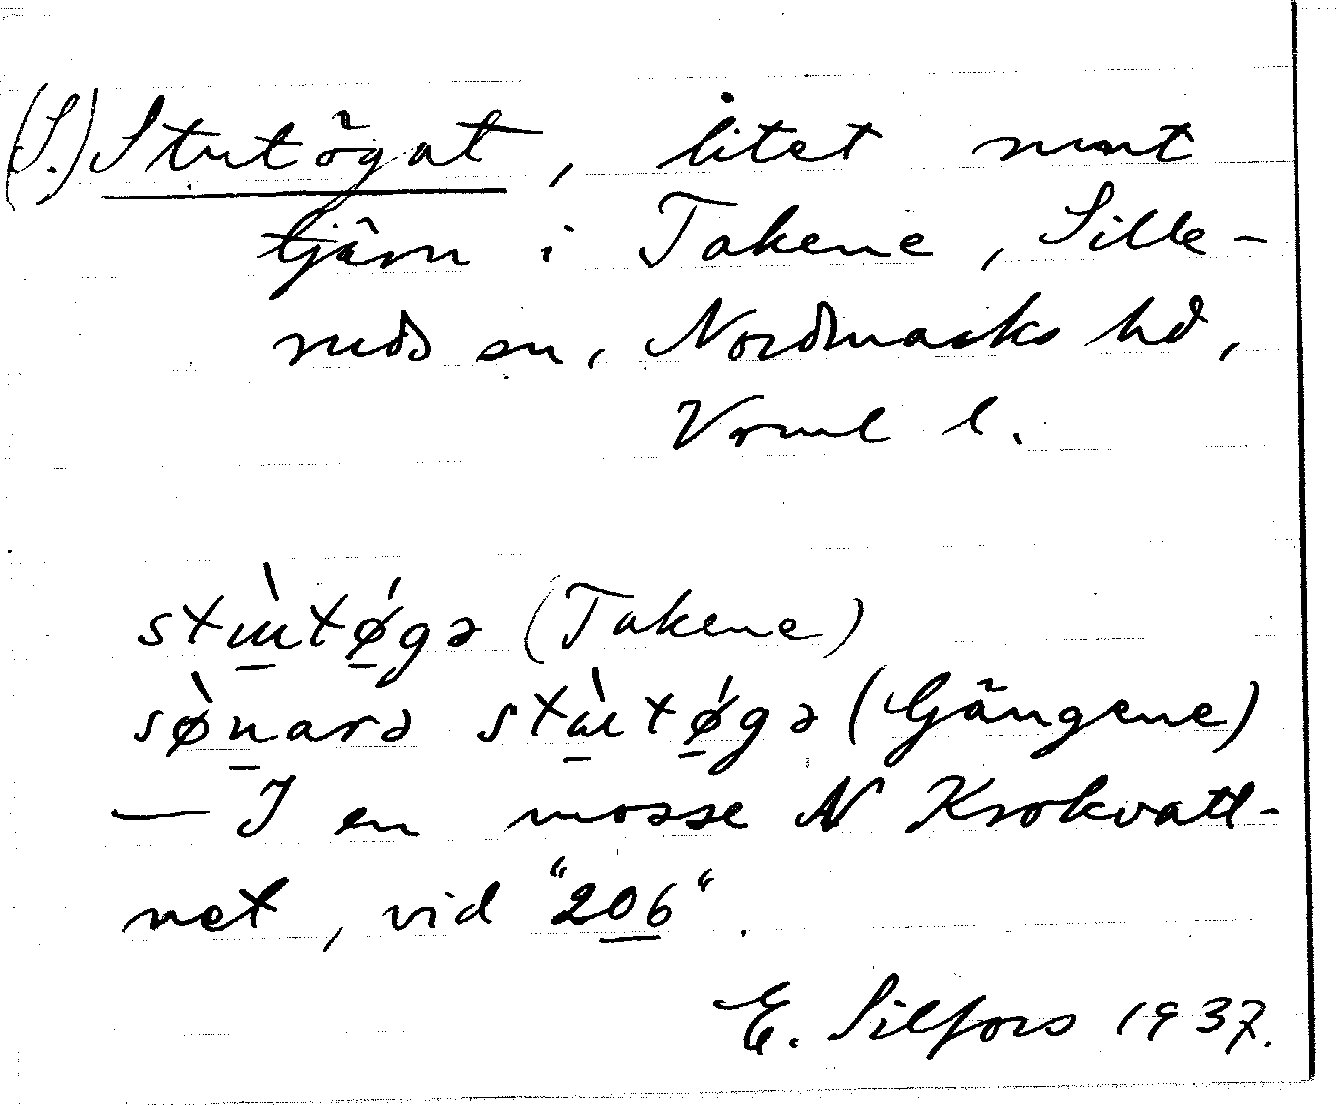 (S.) Stutögat, litet runt
tjärn i Takene, Sille-
ruds sn, Nordmarks hd,
Vrml l.
stɯ̀tǿgə (Takene)
sø̀narə stɯ̀tǿgə (Gängene)
— I en mosse N Krokvatt-
net, vid "206".
E. Silfors 1937.